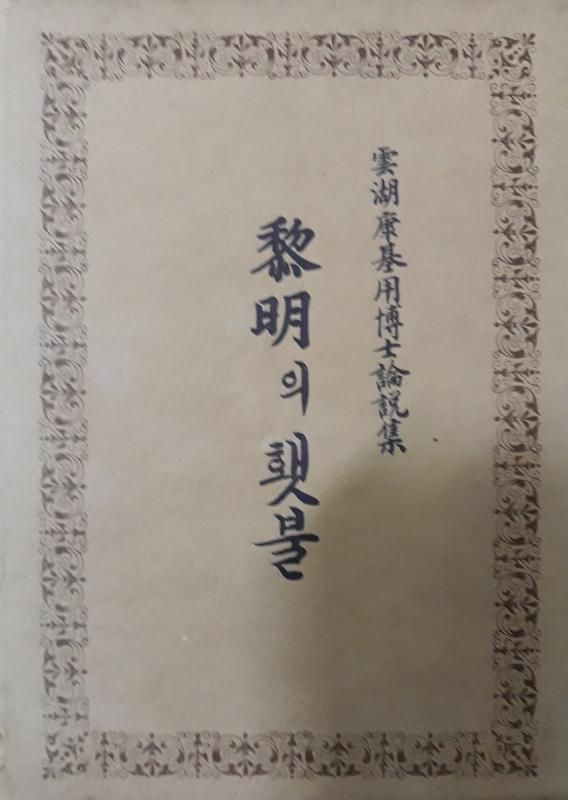 雲湖康基用博士論説集
黎明의 횃불